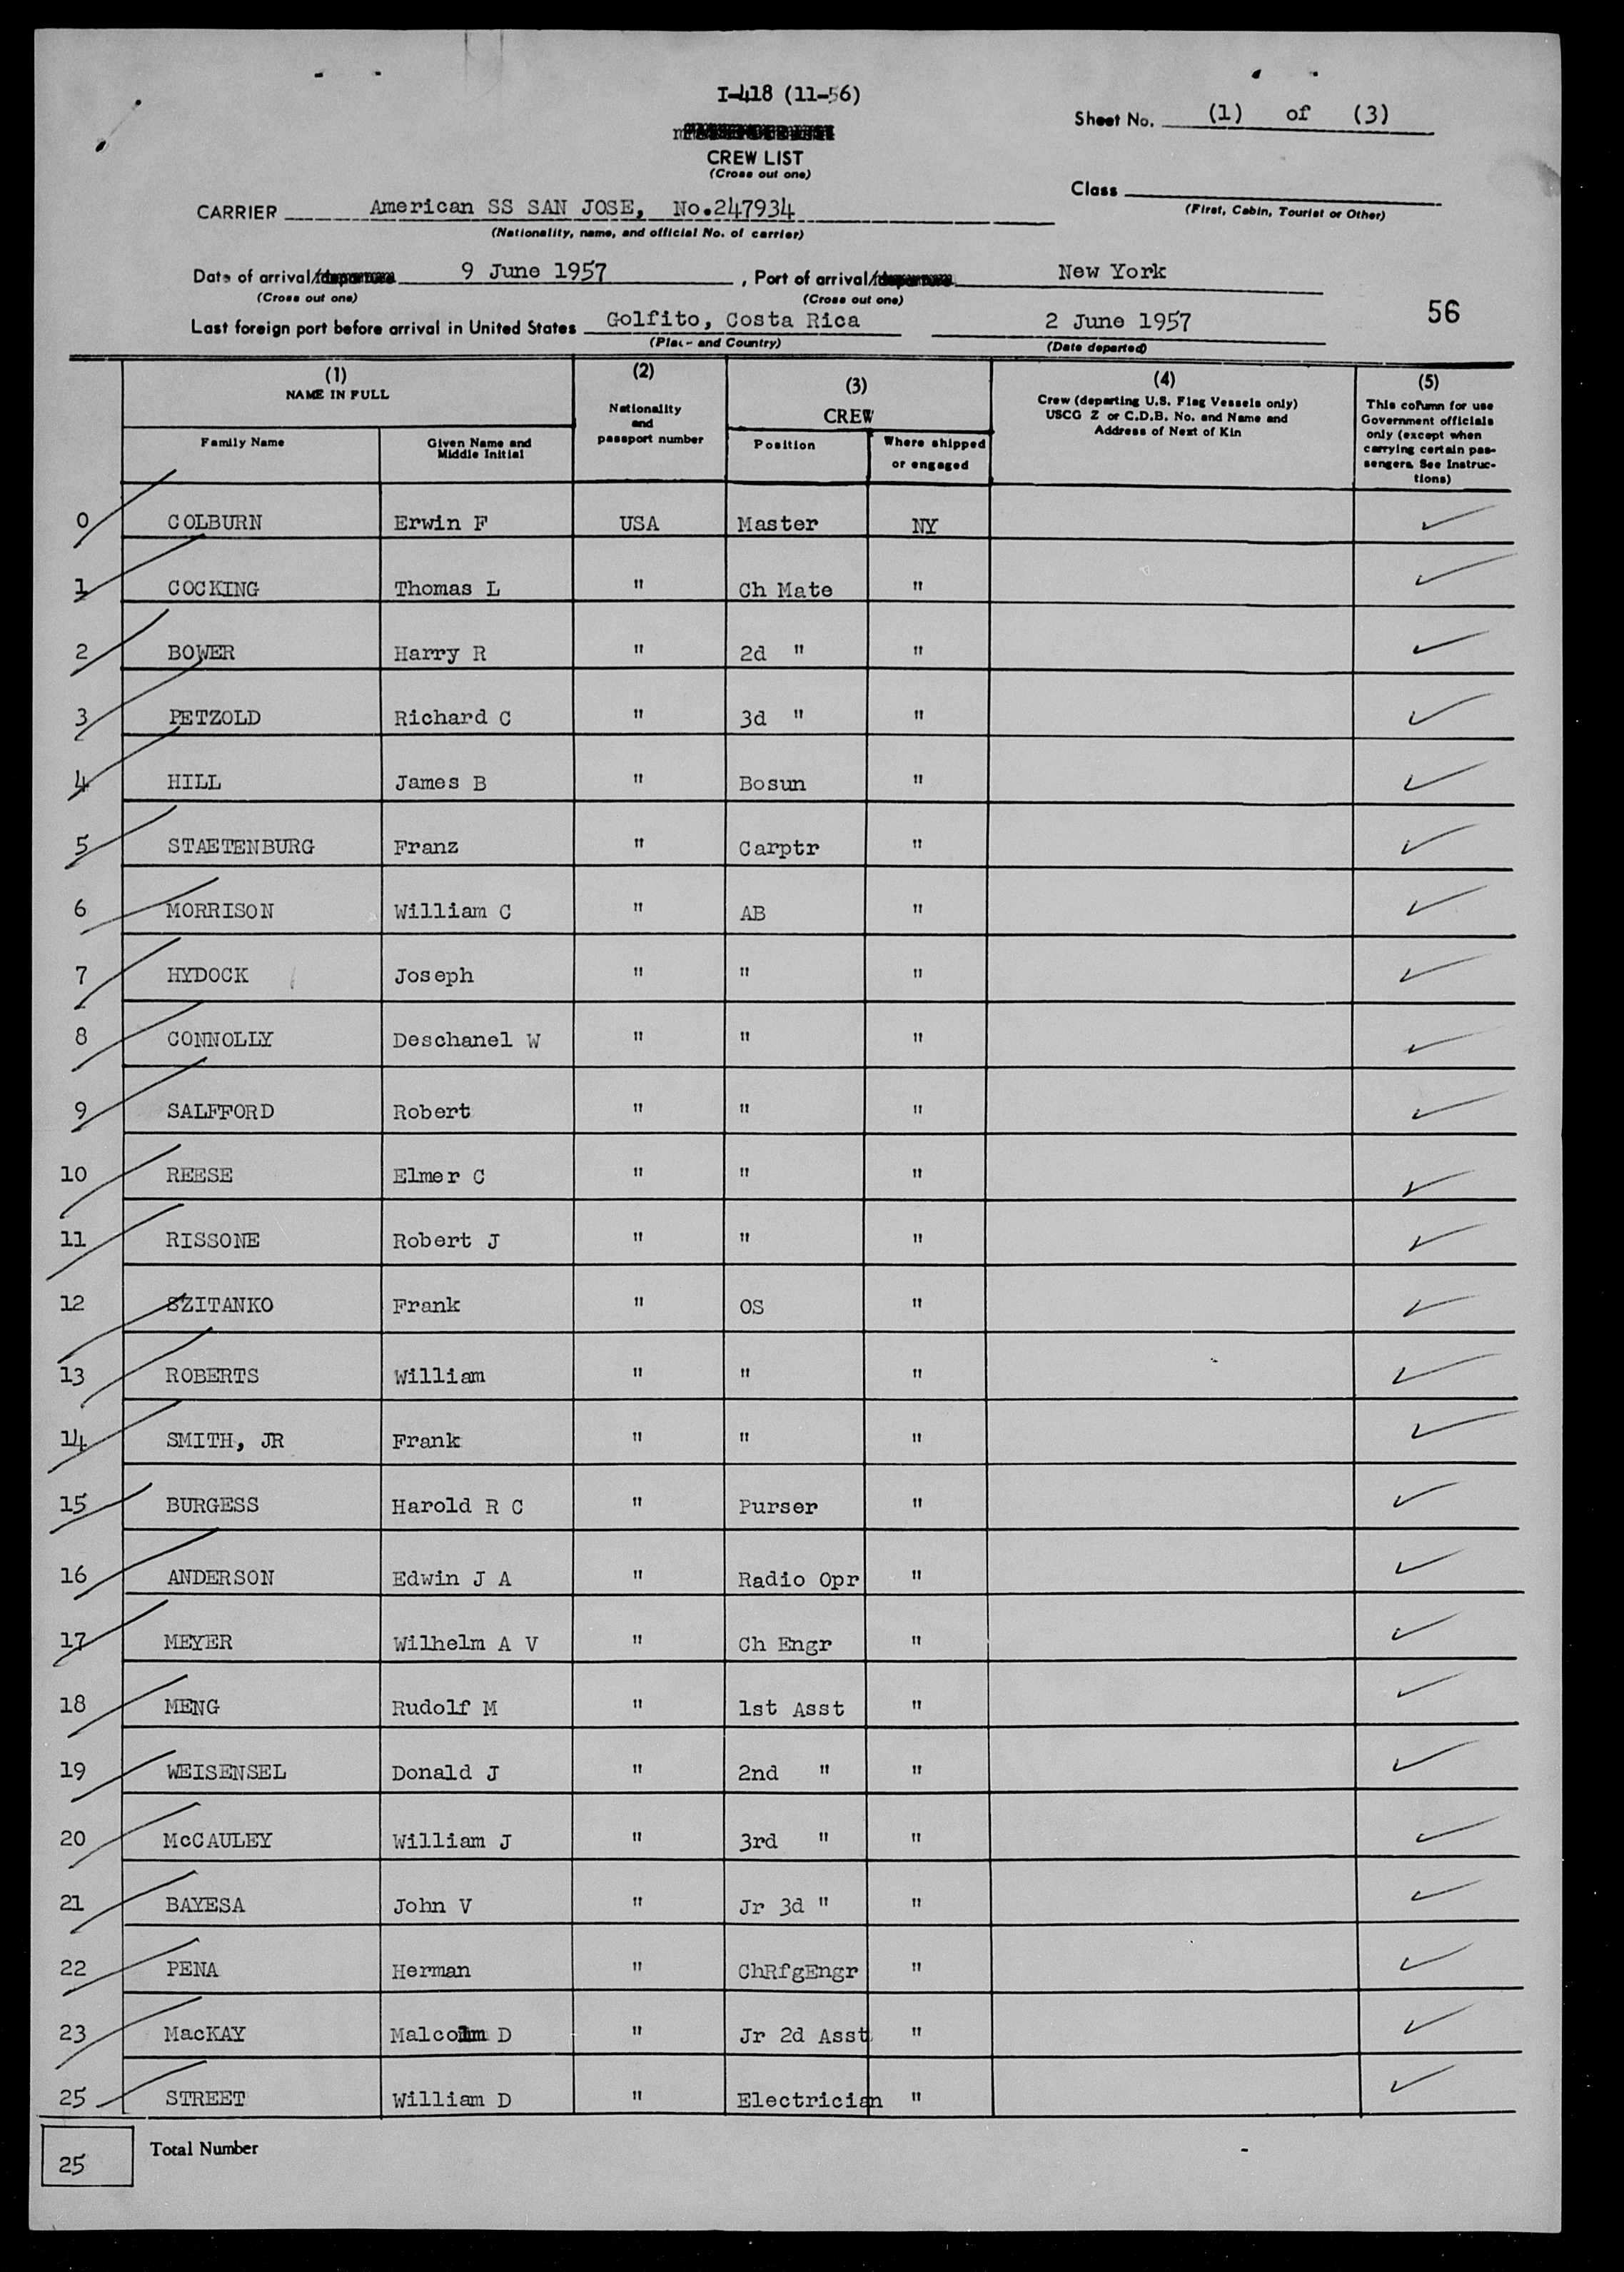 I-418 (11-56)
Sheet No. (1) of (3)
CREW LIST
(Cross out one)
Class
(First, Cabin, Tourist or Other)
CARRIER American SS SAN JOSE, No.247934
(Nationality, name, and official No. of carrier)
Date of arrival/ 9 June 1957, Port of arrival/ New York
(Cross out one) (Cross out one)
56
Last foreign port before arrival in United States Golfito, Costa Rica 2 June 1957
(Place and Country) (Date departed)
(1) NAME IN FULL
Family Name
Given Name and Middle Initial
(2) Nationality and passport number
(3) CREW
Position
Where shipped or engaged
(4) Crew (departing U.S. Flag Vessels only) USCG Z or C.D.B. No. and Name and Address of Next of Kin
(5) This column for use Government officials only (except when carrying certain passengers. See Instructions)
0 COLBURN Erwin F USA Master NY
1 COCKING Thomas L " Ch Mate "
2 BOWER Harry R " 2d " "
3 PETZOLD Richard C " 3d " "
4 HILL James B " Bosun "
5 STAETENBURG Franz " Carptr "
6 MORRISON William C " AB "
7 HYDOCK Joseph " " "
8 CONNOLLY Deschanel W " " "
9 SALFFORD Robert " " "
10 REESE Elmer C " " "
11 RISSONE Robert J " " "
12 SZITANKO Frank " OS "
13 ROBERTS William " " "
14 SMITH, JR Frank " " "
15 BURGESS Harold R C " Purser "
16 ANDERSON Edwin J A " Radio Opr "
17 MEYER Wilhelm A V " Ch Engr "
18 MENG Rudolf M " 1st Asst "
19 WEISENSEL Donald J " 2nd " "
20 McCAULEY William J " 3rd " "
21 BAYESA John V " Jr 3d " "
22 PENA Herman " ChRfgEngr "
23 MacKAY Malcolm D " Jr 2d Asst "
25 STREET William D " Electrician "
25 Total Number